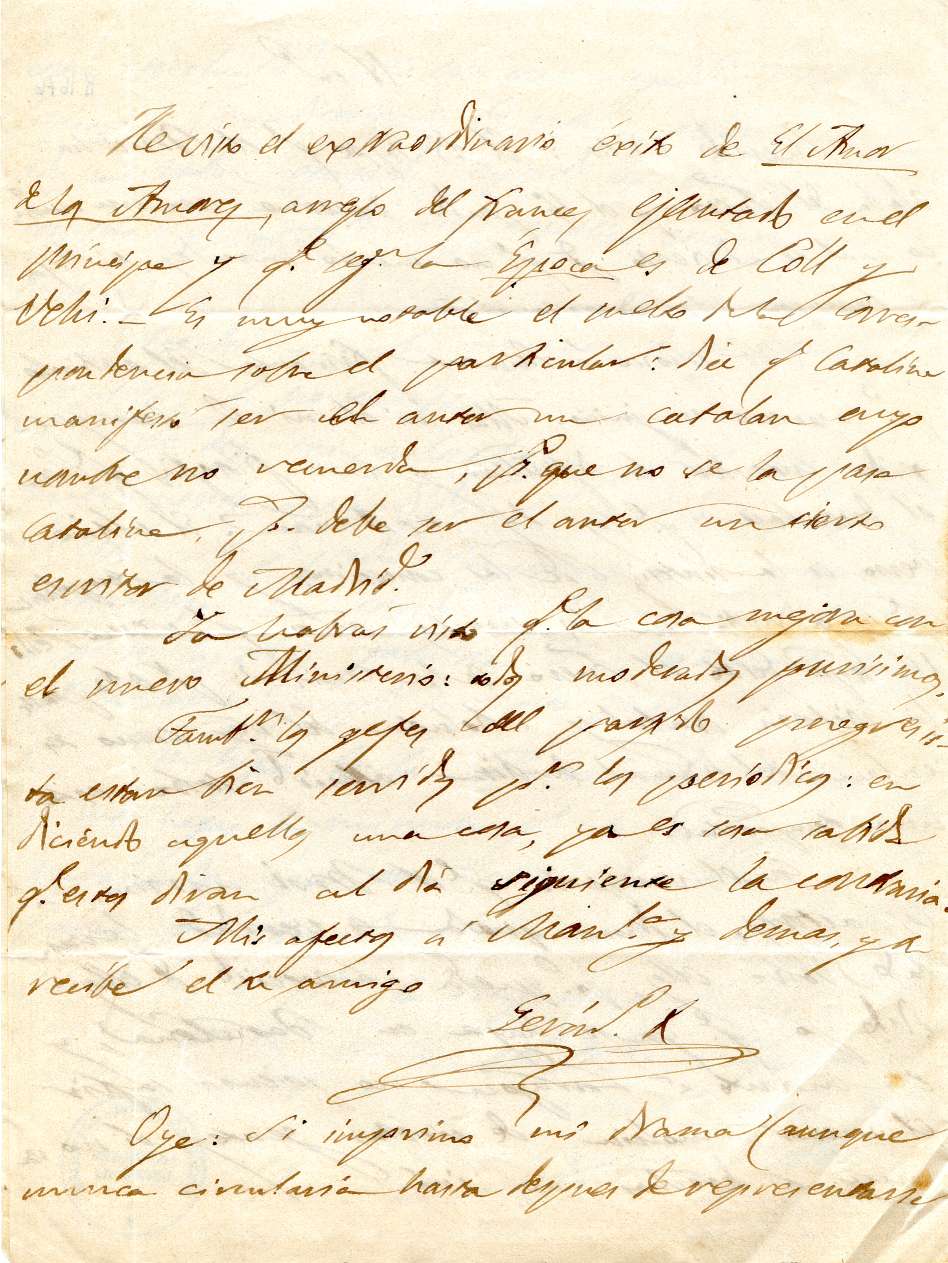 He visto el extraordinario éxito de El Amor
de los Amores, arreglo del frances ejecutado en el
Principe y q.e seg.n la Época es de Cóll y
Vehi. – Es muy notable el suelto de la Corres-
pondencia sobre el particular: dice q.e Catalina
manifestó ser el autor un catalan cuyo
nombre no recuerda, p.r que no se la pasa
Catalina, p.s debe ser el autor un cierto
escritor de Madrid.
Ya habrás visto q.e la cosa mejora con
el nuevo Ministerio: todos moderados purísimos
Tamb.n los gefes del partido progresis-
ta estan bien servidos p.r los periodicos: en
diciendo aquellos una cosa, ya es cosa sabida
q.e estos diran al dia siguiente la contraria.
Mis afectos á Man.la y demas, y tu
recibe el tu amigo
Gerón.o
Oye: Si imprimo mi drama (aunque
nunca circularia hasta despues de representarse